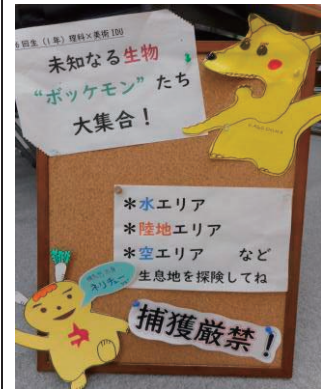 6回生(1年)理科×美術IDU
未知なる生物
“ボッケモン”たち
大集合!
*水エリア
*陸地エリア
*空エリア など
生息地を探険してね
ネリチュー
捕獲厳禁!